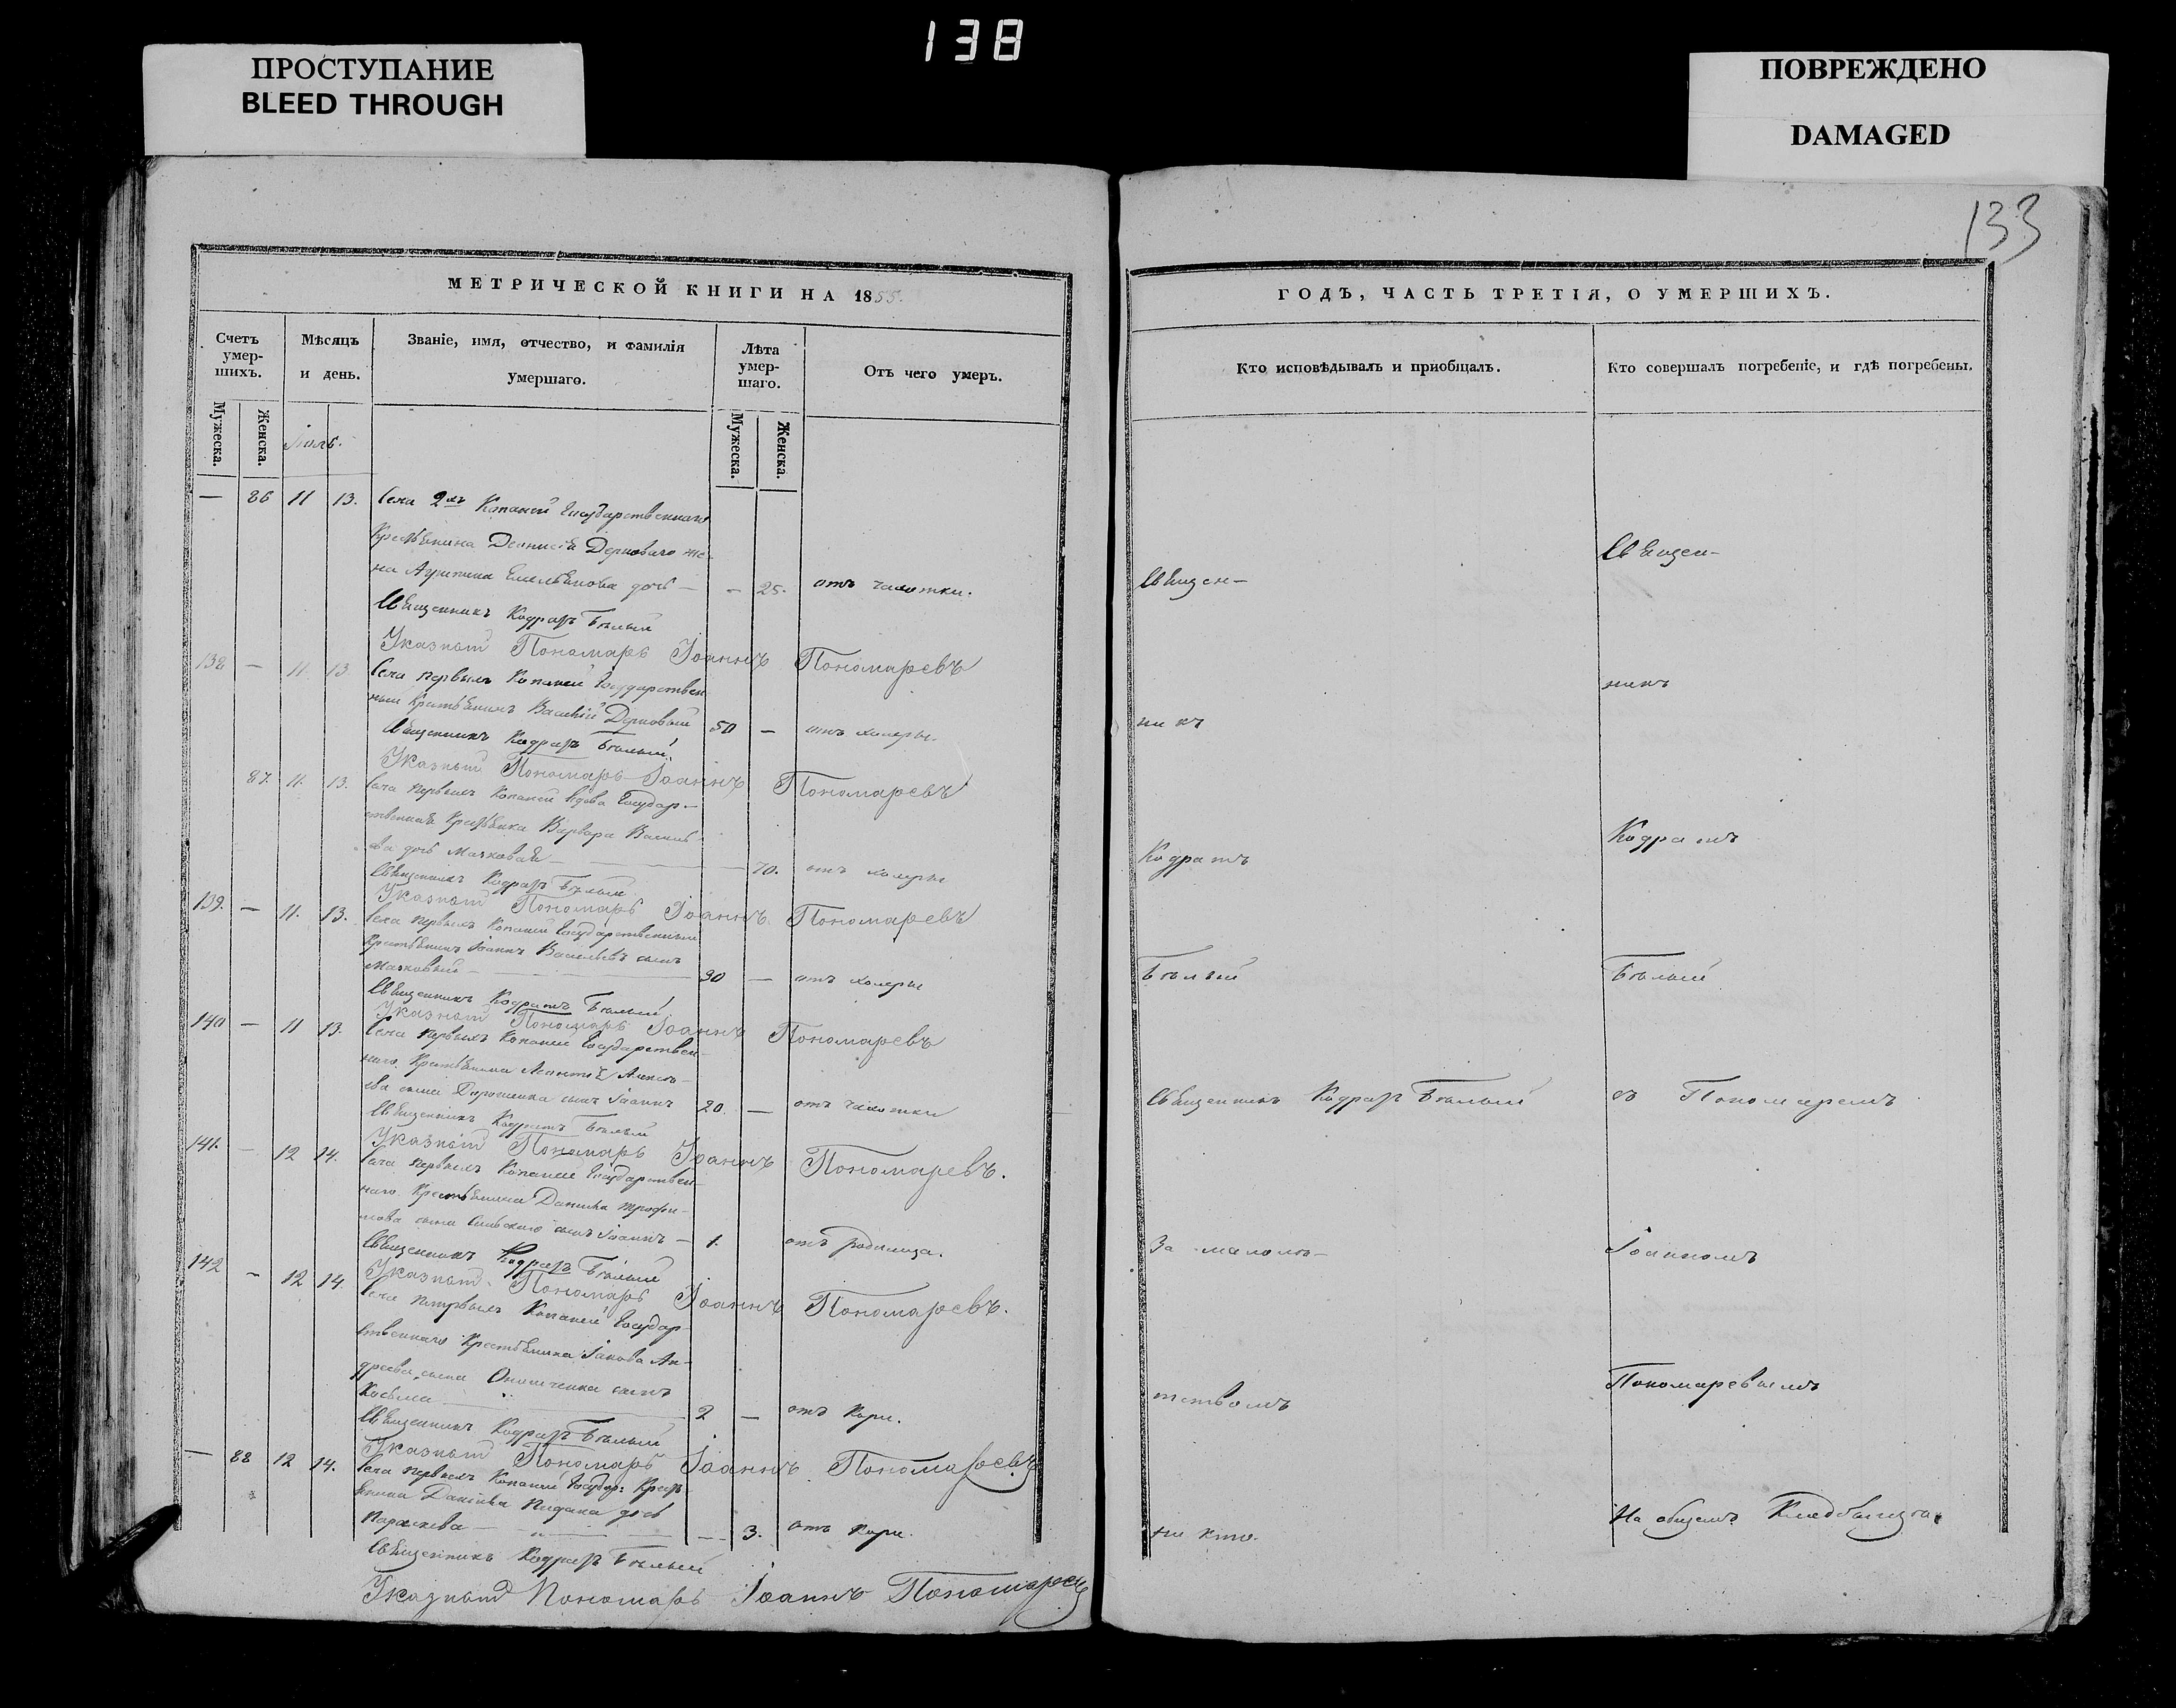 138
ПРОСТУПАНИЕ
BLEED THROUGH
ПОВРЕЖДЕНО
DAMAGED
133
МЕТРИЧЕСКОЙ КНИГИ НА 1855.
Счетъ умер-шихъ.
Мѣсяцъ и день.
Званіе, имя, отчество, и фамилія умершаго.
Лѣта умер-шаго.
Отъ чего умеръ.
Мужеска.
Женска.
Мужеска.
Женска.
Іюль.
— 86 11 13. Села 2хъ Копаней Государственнаго
Крестьянина Деонисія Дерноваго же-
на Емельянова дочь — — 25. отъ чахотки.
Священникъ Кодратъ Бѣлый
Указный Пономарь Іоаннъ Пономаревъ
138 — 11 13 Села первыхъ Копаней Государствен
ный Крестьянинъ Василій Дерновый 50 — отъ холеры.
Священникъ Кодратъ Бѣлый
Указный Пономарь Іоаннъ Пономаревъ
87. 11. 13. Села первыхъ Копаней вдова Государ-
ственная Крестьянка Варвара Василь
ева дочь Мачковая — 70. отъ холеры
Священникъ Кодратъ Бѣлый
Указный Пономарь Іоаннъ Пономаревъ
139. — 11. 13. Села первыхъ Копаней Государственный
Крестьянинъ Іоаннъ Васильевъ сынъ
Мачковый — 30 — отъ холеры
Священникъ Кодратъ Бѣлый
Указный Пономарь Іоаннъ Пономаревъ
140 — 11 13. Села первыхъ Копаней Государствен-
наго Крестьянина Леонтія Алексѣ-
ева сына сынъ Іоаннъ 20. — отъ чахотки
Священникъ Кодратъ Бѣлый
Указный Пономарь Іоаннъ Пономаревъ.
141. — 12 14. Села первыхъ Копаней Государствен-
наго Крестьянина Даниила Трофи-
мова сына сынъ Іоаннъ — 1. отъ родимца.
Священникъ Кодратъ Бѣлый
Указный Пономарь Іоаннъ Пономаревъ.
142 — 12 14. Села первыхъ Копаней Государ-
ственнаго Крестьянина Іакова Ан-
дреева сына Онищенка сынъ
Косьма — 2 — отъ кори.
Священникъ Кодратъ Бѣлый
Указный Пономарь Іоаннъ Пономаревъ
— 88 12 14. Села первыхъ Копаней Государ: Крест
янина Даніила дочь
Параскева — — 3. отъ кори.
Священникъ Кодратъ Бѣлый
Указный Пономарь Іоаннъ Пономаревъ
ГОДЪ, ЧАСТЬ ТРЕТІЯ, О УМЕРШИХЪ.
Кто исповѣдывалъ и пріобщалъ.
Кто совершалъ погребеніе, и гдѣ погребены.
Священ-
никъ
Кодратъ
Бѣлый
Священникъ Кодратъ Бѣлый
За малолѣ-
тствомъ
ни кто.
Священ-
никъ
Кодратъ
Бѣлый
съ Пономаремъ
Іоанномъ
Пономаревымъ
На общемъ Кладбищѣ.